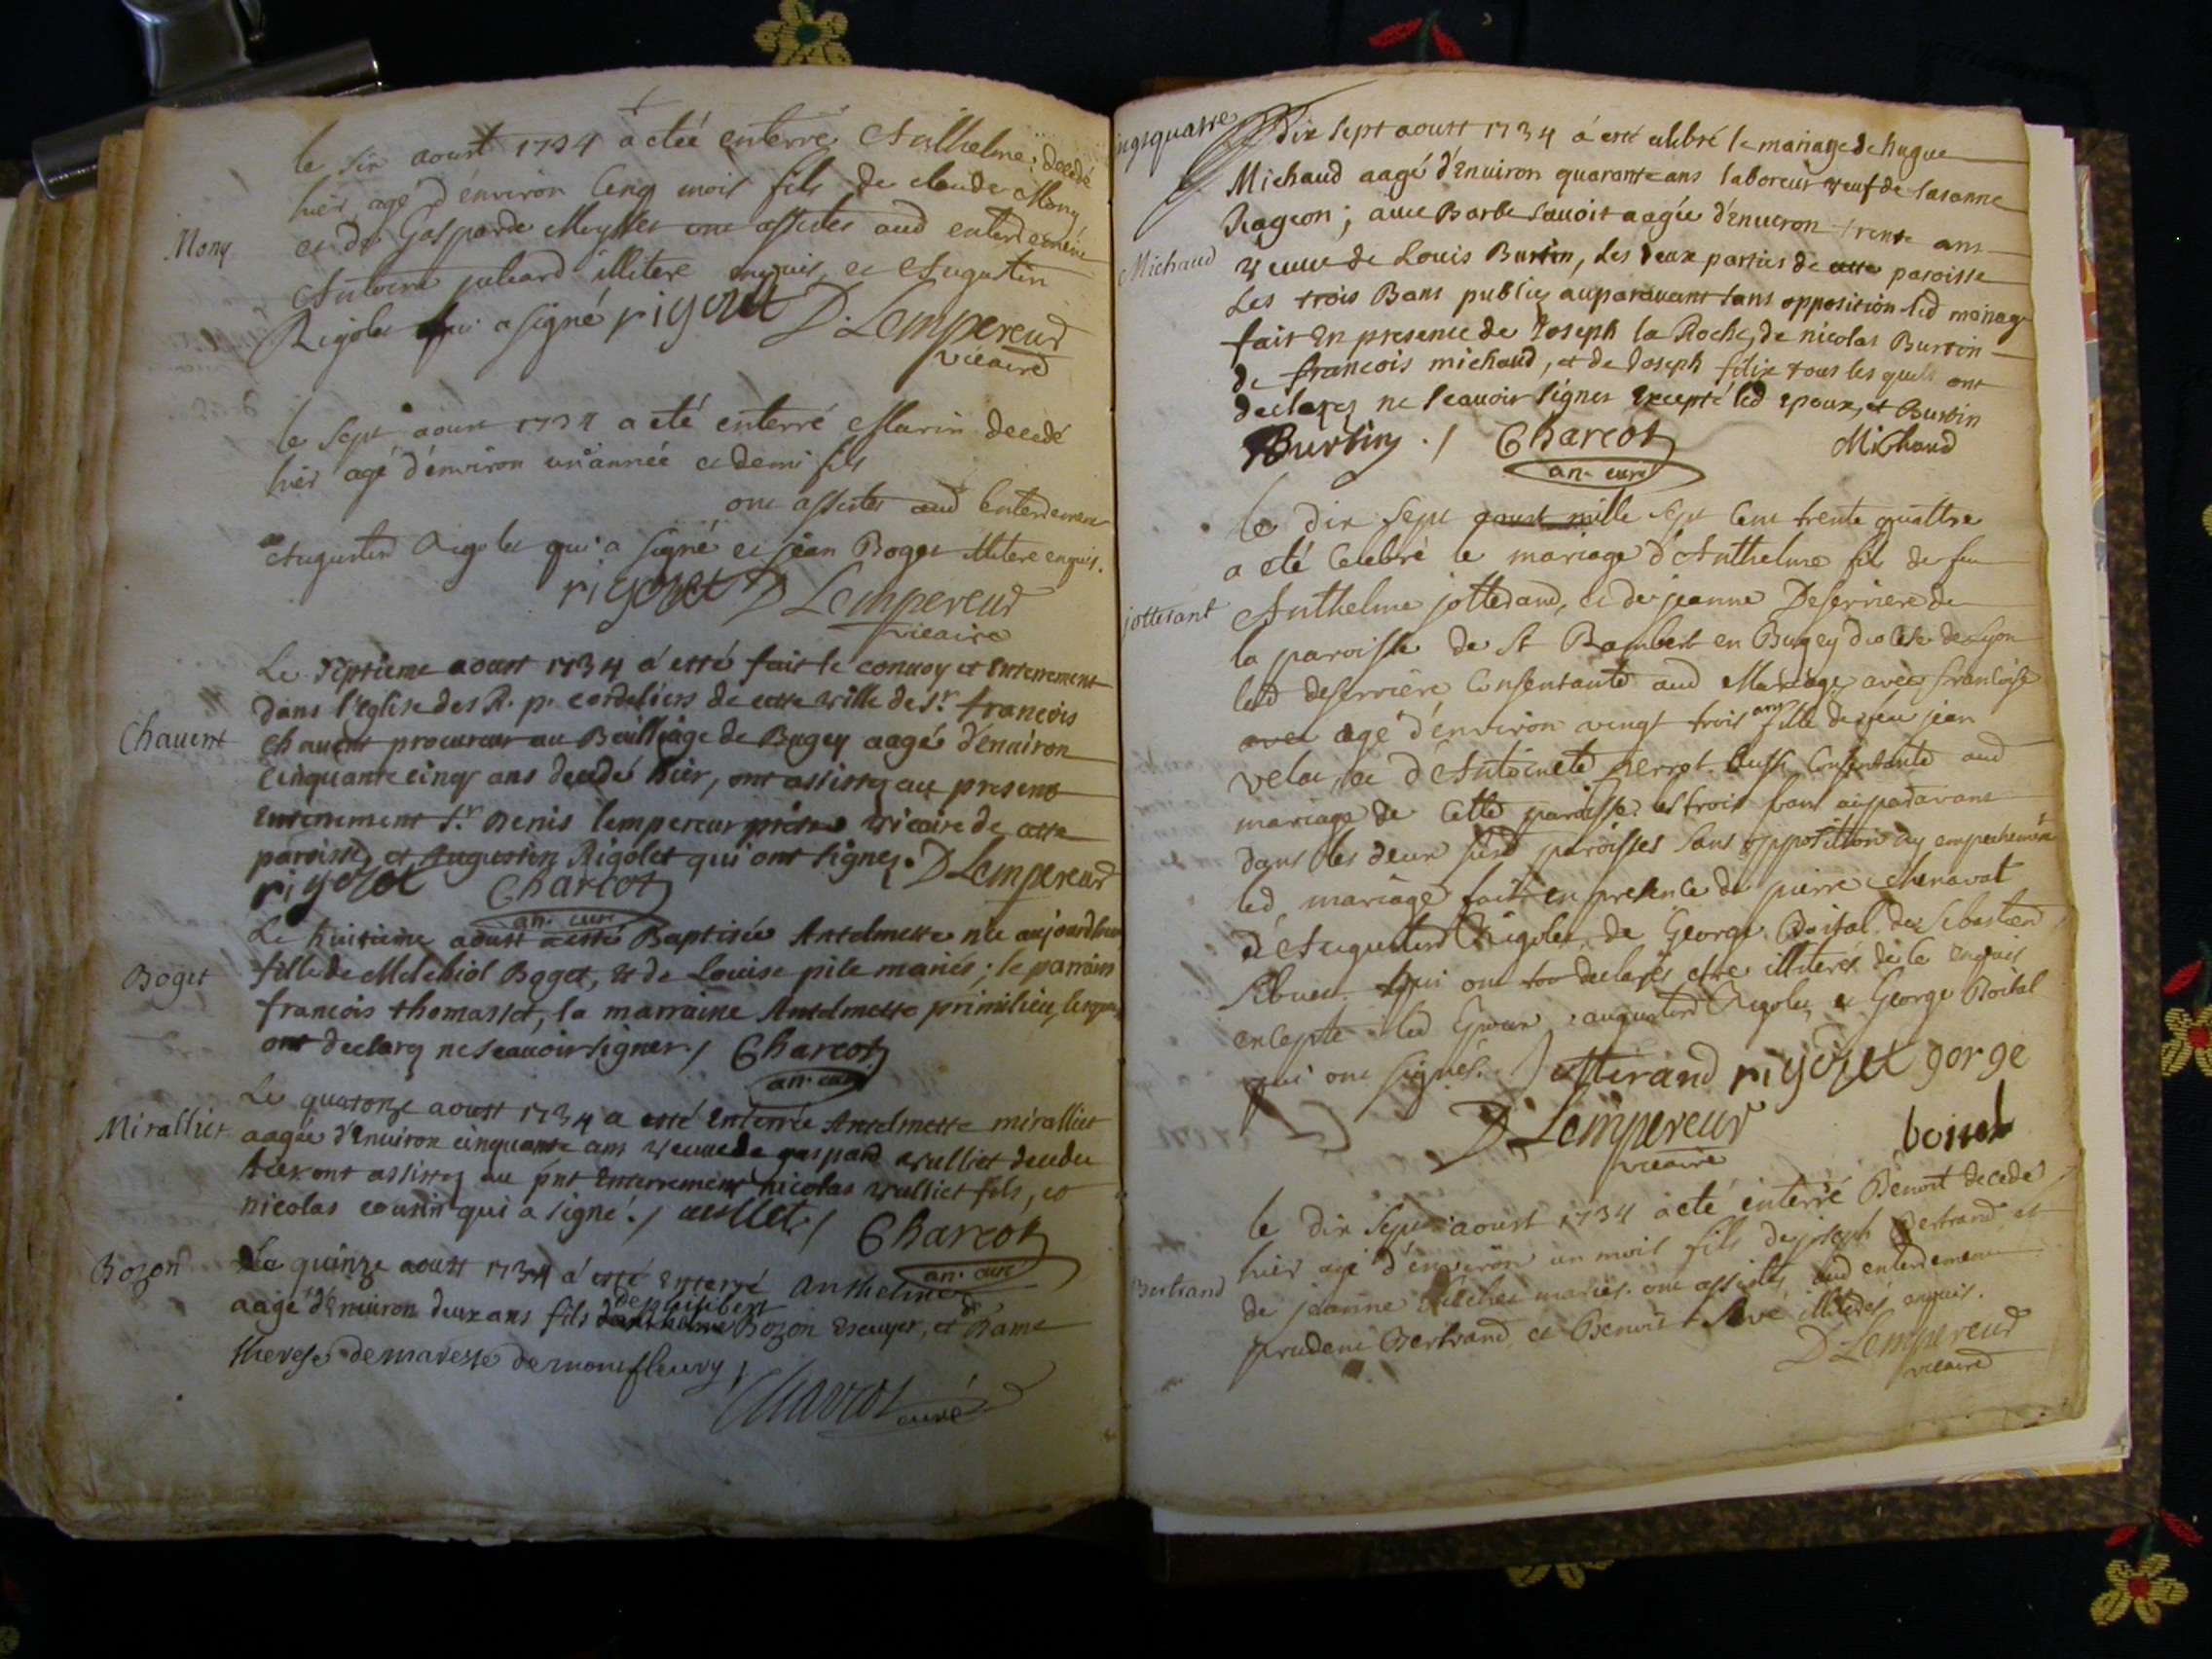 le six aoust 1734 a eteé enterré Anthelme decedé
hier, agé d'environ Cinq mois fils de claude Mony
Mony
et de Gasparde Meyssez ont assistes aud enterdement
Antoine juliard illitere enquis, et Augustin
Rigolet qui a signé rigollet D. Lempereur
vicaire
le sept aoust 1734 a eté enterré Marin decedé
hier agé d'environ un année et demi fils
ont assistes aud Enterdement
Augustin Rigolet qui a signé et jean Boget illitere enquis.
rigollet D Lempereur
vicaire
Le Septieme aoust 1734 a esté fait le convoy et Enterrement
dans l'eglise des R. p. cordeliers de cette ville de Sr. francois
Chauent
Chauent procureur au Bailliage de Bugey aagé d'enuiron
Cinquante cinq ans decedé hier, ont assistez au present
Enterrement Sr. Denis lempereur prêtre vicaire de cette
paroisse, et Augustin Rigolet qui ont signez. D Lempereur
rigollet Charcot
an. curé
Le huitieme aoust a esté Baptisée Antelmette née aujourdhuy
Boget
fille de Melchiol Boget, et de Louise pile mariés; le parrain
francois thomasset, la marraine Antelmette primilieu, lesquels
ont declarez ne scauoir signer / Charcot
an. curé
Le quatorze aoust 1734 a esté Enterrée Antelmette miralliet
Miralliet
aagée d'Enuiron cinquante ans veuue de gaspard vulliet decedée
hier ont assistez au pnt Enterrement nicolas vulliet fils, et
nicolas cousin qui a signé. / /
Charcot
an. curé
Bozon
Le quinze aoust 1734 a esté Enterré Anthelme
aagé d'Enuiron deux ans fils de philibert Bozon Escuyer, et Dame
therese demareste de montfleury /
Charcot curé
Dix Sept aoust 1734 a esté celebré le mariage de hugue
Michaud aagé d'Enuiron quarante ans laboreur veuf de Sasanne
Rageon; auec Barbe Sauoit aagée d'enuiron trente ans
Michaud
veuue de Louis Burtin, Les deux parties de cette paroisse
Les trois Bans publiez auparauant sans opposition led mariage
fait En presence de Joseph la Roche, de nicolas Burtin
de francois michaud, et de Joseph felix tous les quels ont
declarez ne scauoir signer Excepté led epoux, et Burtin
Burtin . / Charcot Michaud
an. curé
Le dix sept aoust mille sept Cent trente quattre
a eté Celebré le mariage d'Anthelme fils de feu
jotterant
Anthelme jotterand, et de jeanne Deserriere de
la paroisse de St Rambert en Bugey diocese de Lyon
lad deserriere Consentante aud Mariage avec francoise
avec age d'environ vingt trois ans fille de feu jean
velat, et d'Antoinete perrot aussi Consentante aud
mariage de Cette paroisse les trois bans auparavant
dans les deux susd paroisses Sans oppositition ny empechement
led mariage fait en presence de pierre Chenavat
d'Augustin Rigolet, de George Boital de Sebastien
Sibuet qui ont declarés etre illiterés de Ce enquis
excepté led Epoux, augustin Rigolet, et George Boital
qui ont signés. Jotterand rigollet gorge
D Lempereur
vicaire
le dix Sept aoust 1734 a eté enterré Benoit decedé
hier agé d'environ un mois fils de joseph Bertrand et
Bertrand
de jeanne mariés. ont assistes aud enterdement
prudent Bertrand, et Benoit illiterés enquis.
D Lempereur
vicaire